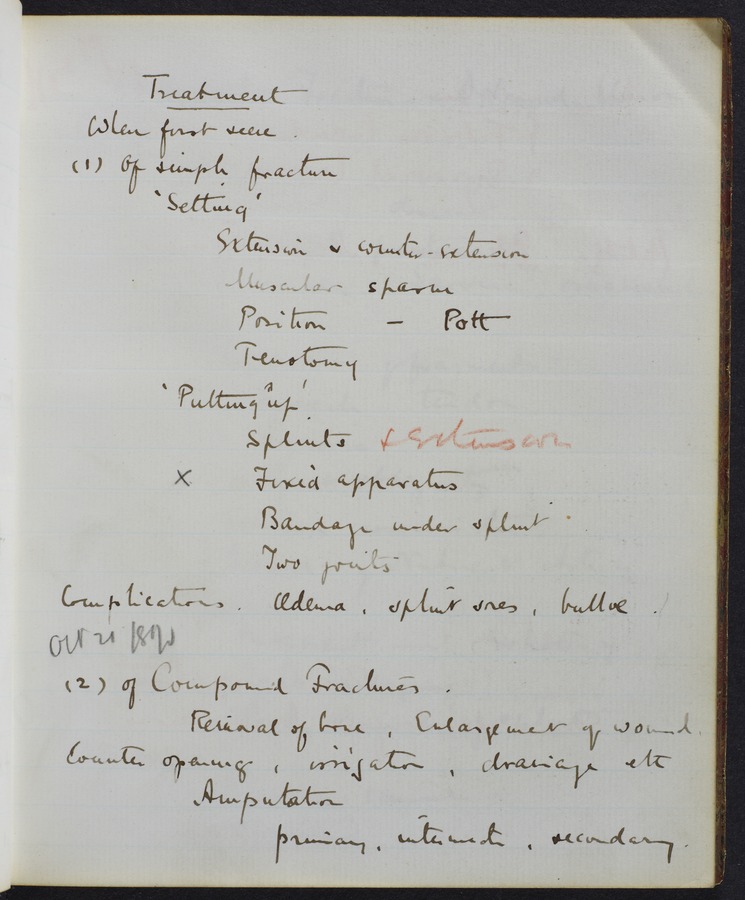 Treatment
When first seen.
(1) Of simple fracture
'Setting'
Extension & counter-extension
Muscular spasm
Position — Pott
Tenotomy
'Putting up'
Splints & Extension
x Fixed apparatus
Bandage under splint.
Two joints
Complications. Œdema, splint sores, bullœ.
Oct 21
(2) of Compound Fractures.
Removal of bone, Enlargement of wound.
Counter opening, irrigation, drainage etc
Amputation
primary, intermedte, secondary.